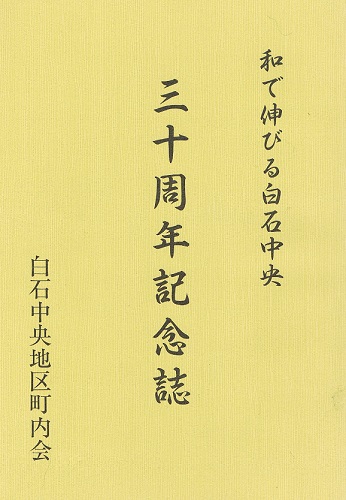 和で伸びる白石中央
三十周年記念誌
白石中央地区町内会